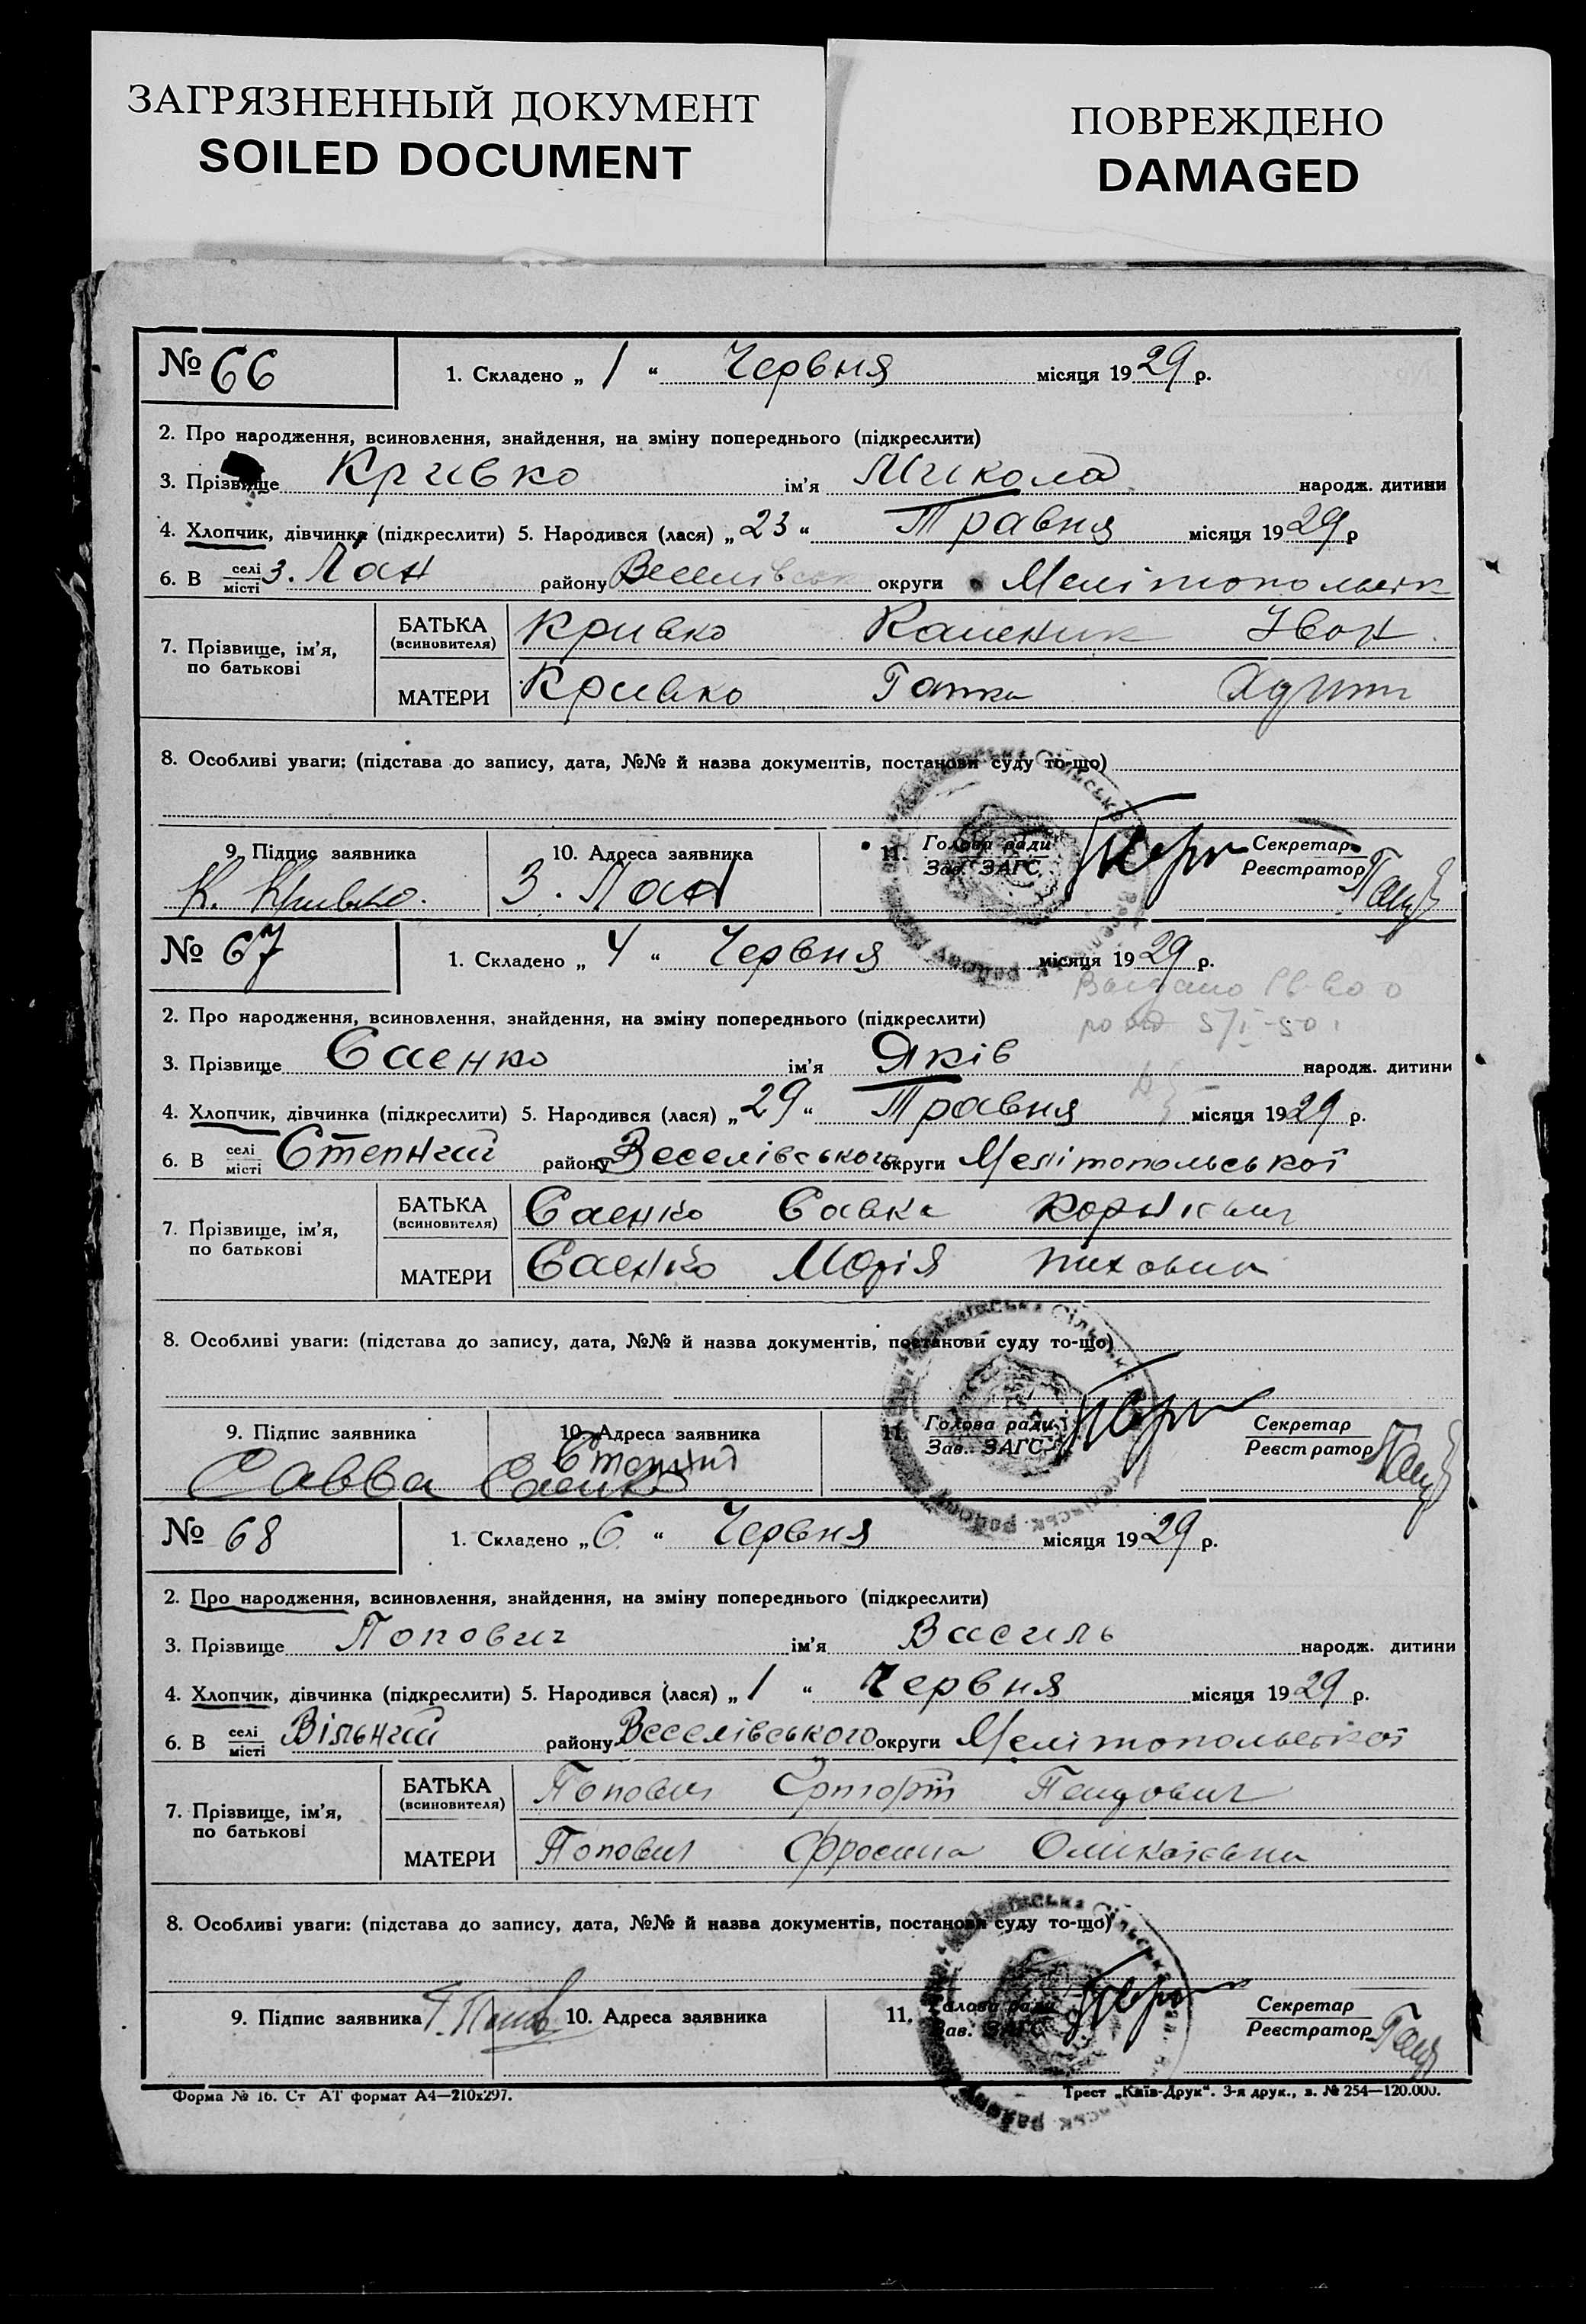 ЗАГРЯЗНЕННЫЙ ДОКУМЕНТ
SOILED DOCUMENT
ПОВРЕЖДЕНО
DAMAGED
№ 66
1. Складено „ 1 “ Червня місяця 1929 р.
2. Про народження, всиновлення, знайдення, на зміну попереднього (підкреслити)
3. Прізвище Кривко ім'я Микола народж. дитини
4. Хлопчик, дівчинка (підкреслити) 5. Народився (лася) „ 23 “ Травня місяця 1929 р
6. В селі місті З. Лан району Веселівськ округи Мелітопольськ
7. Прізвище, ім'я, по батькові
БАТЬКА (всиновителя) Кривко Каленик Іван
МАТЕРИ Кривко Ганна
8. Особливі уваги: (підстава до запису, дата, №№ й назва документів, постанови суду то-що)
9. Підпис заявника 10. Адреса заявника 11. Голова ради Зав. ЗАГС Секретар Реєстратор
К. Кривко. З. Лан
№ 67
1. Складено „ 4 “ Червня місяця 1929 р.
2. Про народження, всиновлення, знайдення, на зміну попереднього (підкреслити)
3. Прізвище Саенко ім'я Яків народж. дитини
4. Хлопчик, дівчинка (підкреслити) 5. Народився (лася) „ 29 “ Травня місяця 1929 р.
6. В селі місті Степний району Веселівського округи Мелітопольської
7. Прізвище, ім'я, по батькові
БАТЬКА (всиновителя) Саенко Савка
МАТЕРИ Саенко Марія
8. Особливі уваги: (підстава до запису, дата, №№ й назва документів, постанови суду то-що)
9. Підпис заявника 10. Адреса заявника 11. Голова ради Зав. ЗАГС Секретар Реєстратор
Степний
Савва Саенко
№ 68
1. Складено „ 6 “ Червня місяця 1929 р.
2. Про народження, всиновлення, знайдення, на зміну попереднього (підкреслити)
3. Прізвище Попович ім'я Василь народж. дитини
4. Хлопчик, дівчинка (підкреслити) 5. Народився (лася) „ 1 “ Червня місяця 1929 р.
6. В селі місті Вільний району Веселівського округи Мелітопольської
7. Прізвище, ім'я, по батькові
БАТЬКА (всиновителя) Попович
МАТЕРИ Попович Фросина
8. Особливі уваги: (підстава до запису, дата, №№ й назва документів, постанови суду то-що)
9. Підпис заявника 10. Адреса заявника 11. Голова ради Зав. ЗАГС Секретар Реєстратор
Форма № 16. Ст АТ формат А4—210х297.
Трест „Київ-Друк“. 3-я друк., з. № 254—120.000.